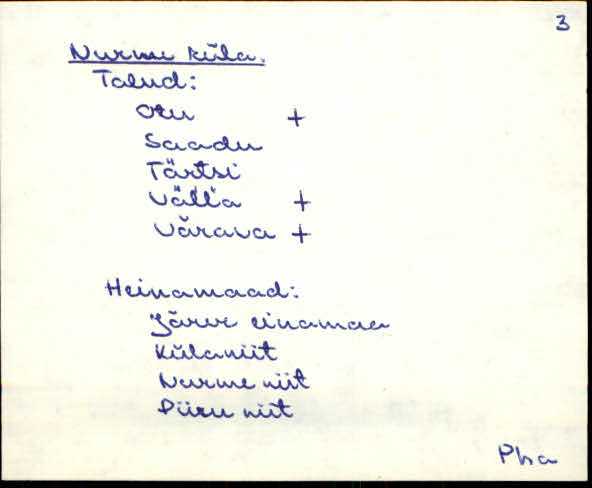 3
Nurme küla.
Talud:
Oru +
Saadu
Tärtsi
Välľa +
Värava +
Heinamaad:
Järve einamaa
Külaniit
Nurme niit
Piiru niit
Pha